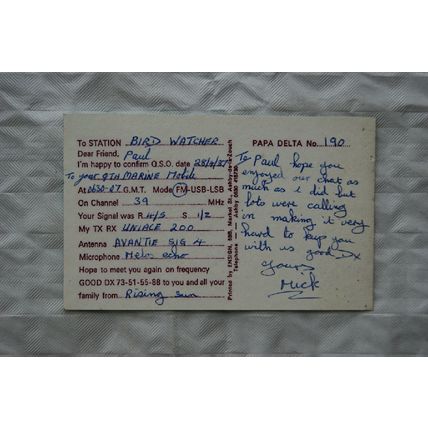 To STATION BIRD WATCHER
Dear Friend, Paul
I'm happy to confirm Q.S.O. date
To your QTH MARINE Mobile
At 0630-07 G.M.T. Mode FM-USB-LSB
On Channel 39 MHz
Your Signal was R 4/5 S 1/2
My TX RX UNIACE 200
Antenna AVANTIE SIG 4
Microphone Melos echo
Hope to meet you again on frequency
GOOD DX 73-51-55-88 to you and all your
family from Rising Sun
Printed by ENSIGN, Market St., Ashby-de-la-Zouch
Telephone Ashby 0530
PAPA DELTA No. 190
To Paul hope you
enjoyed our chat as
much as i did but
lots were calling
in making it very
hard to keep you
with us good DX
Yours
Mick